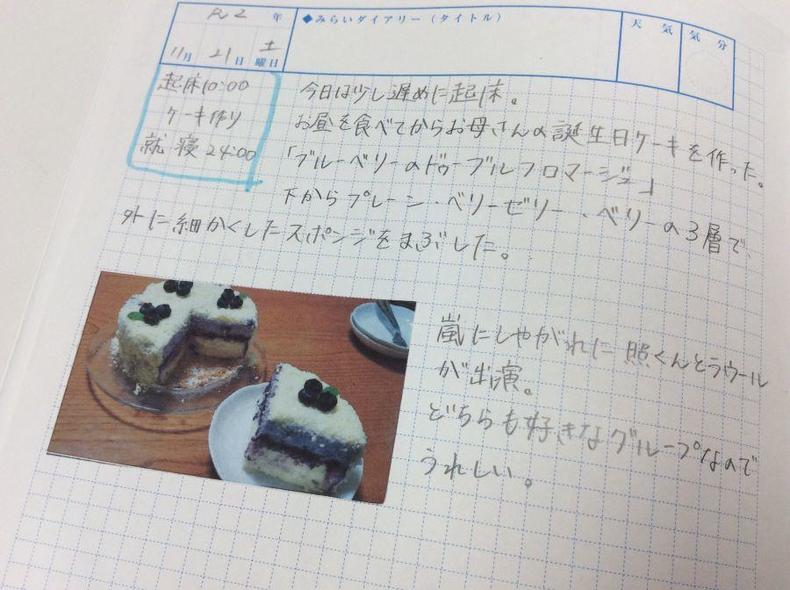 R2年
11月21日土曜日
◆みらいダイアリー(タイトル)
天気
気分
起床10:00
ケーキ作り
就寝24:00
今日は少し遅めに起床。
お昼を食べてからお母さんの誕生日ケーキを作った。
「ブルーベリーのドゥーブルフロマージュ」
下からプレーン・ベリーゼリー・ベリーの3層で、
外に細かくしたスポンジをまぶした。
嵐にしやがれに照くんとラウール
が出演。
どちらも好きなグループなので
うれしい。